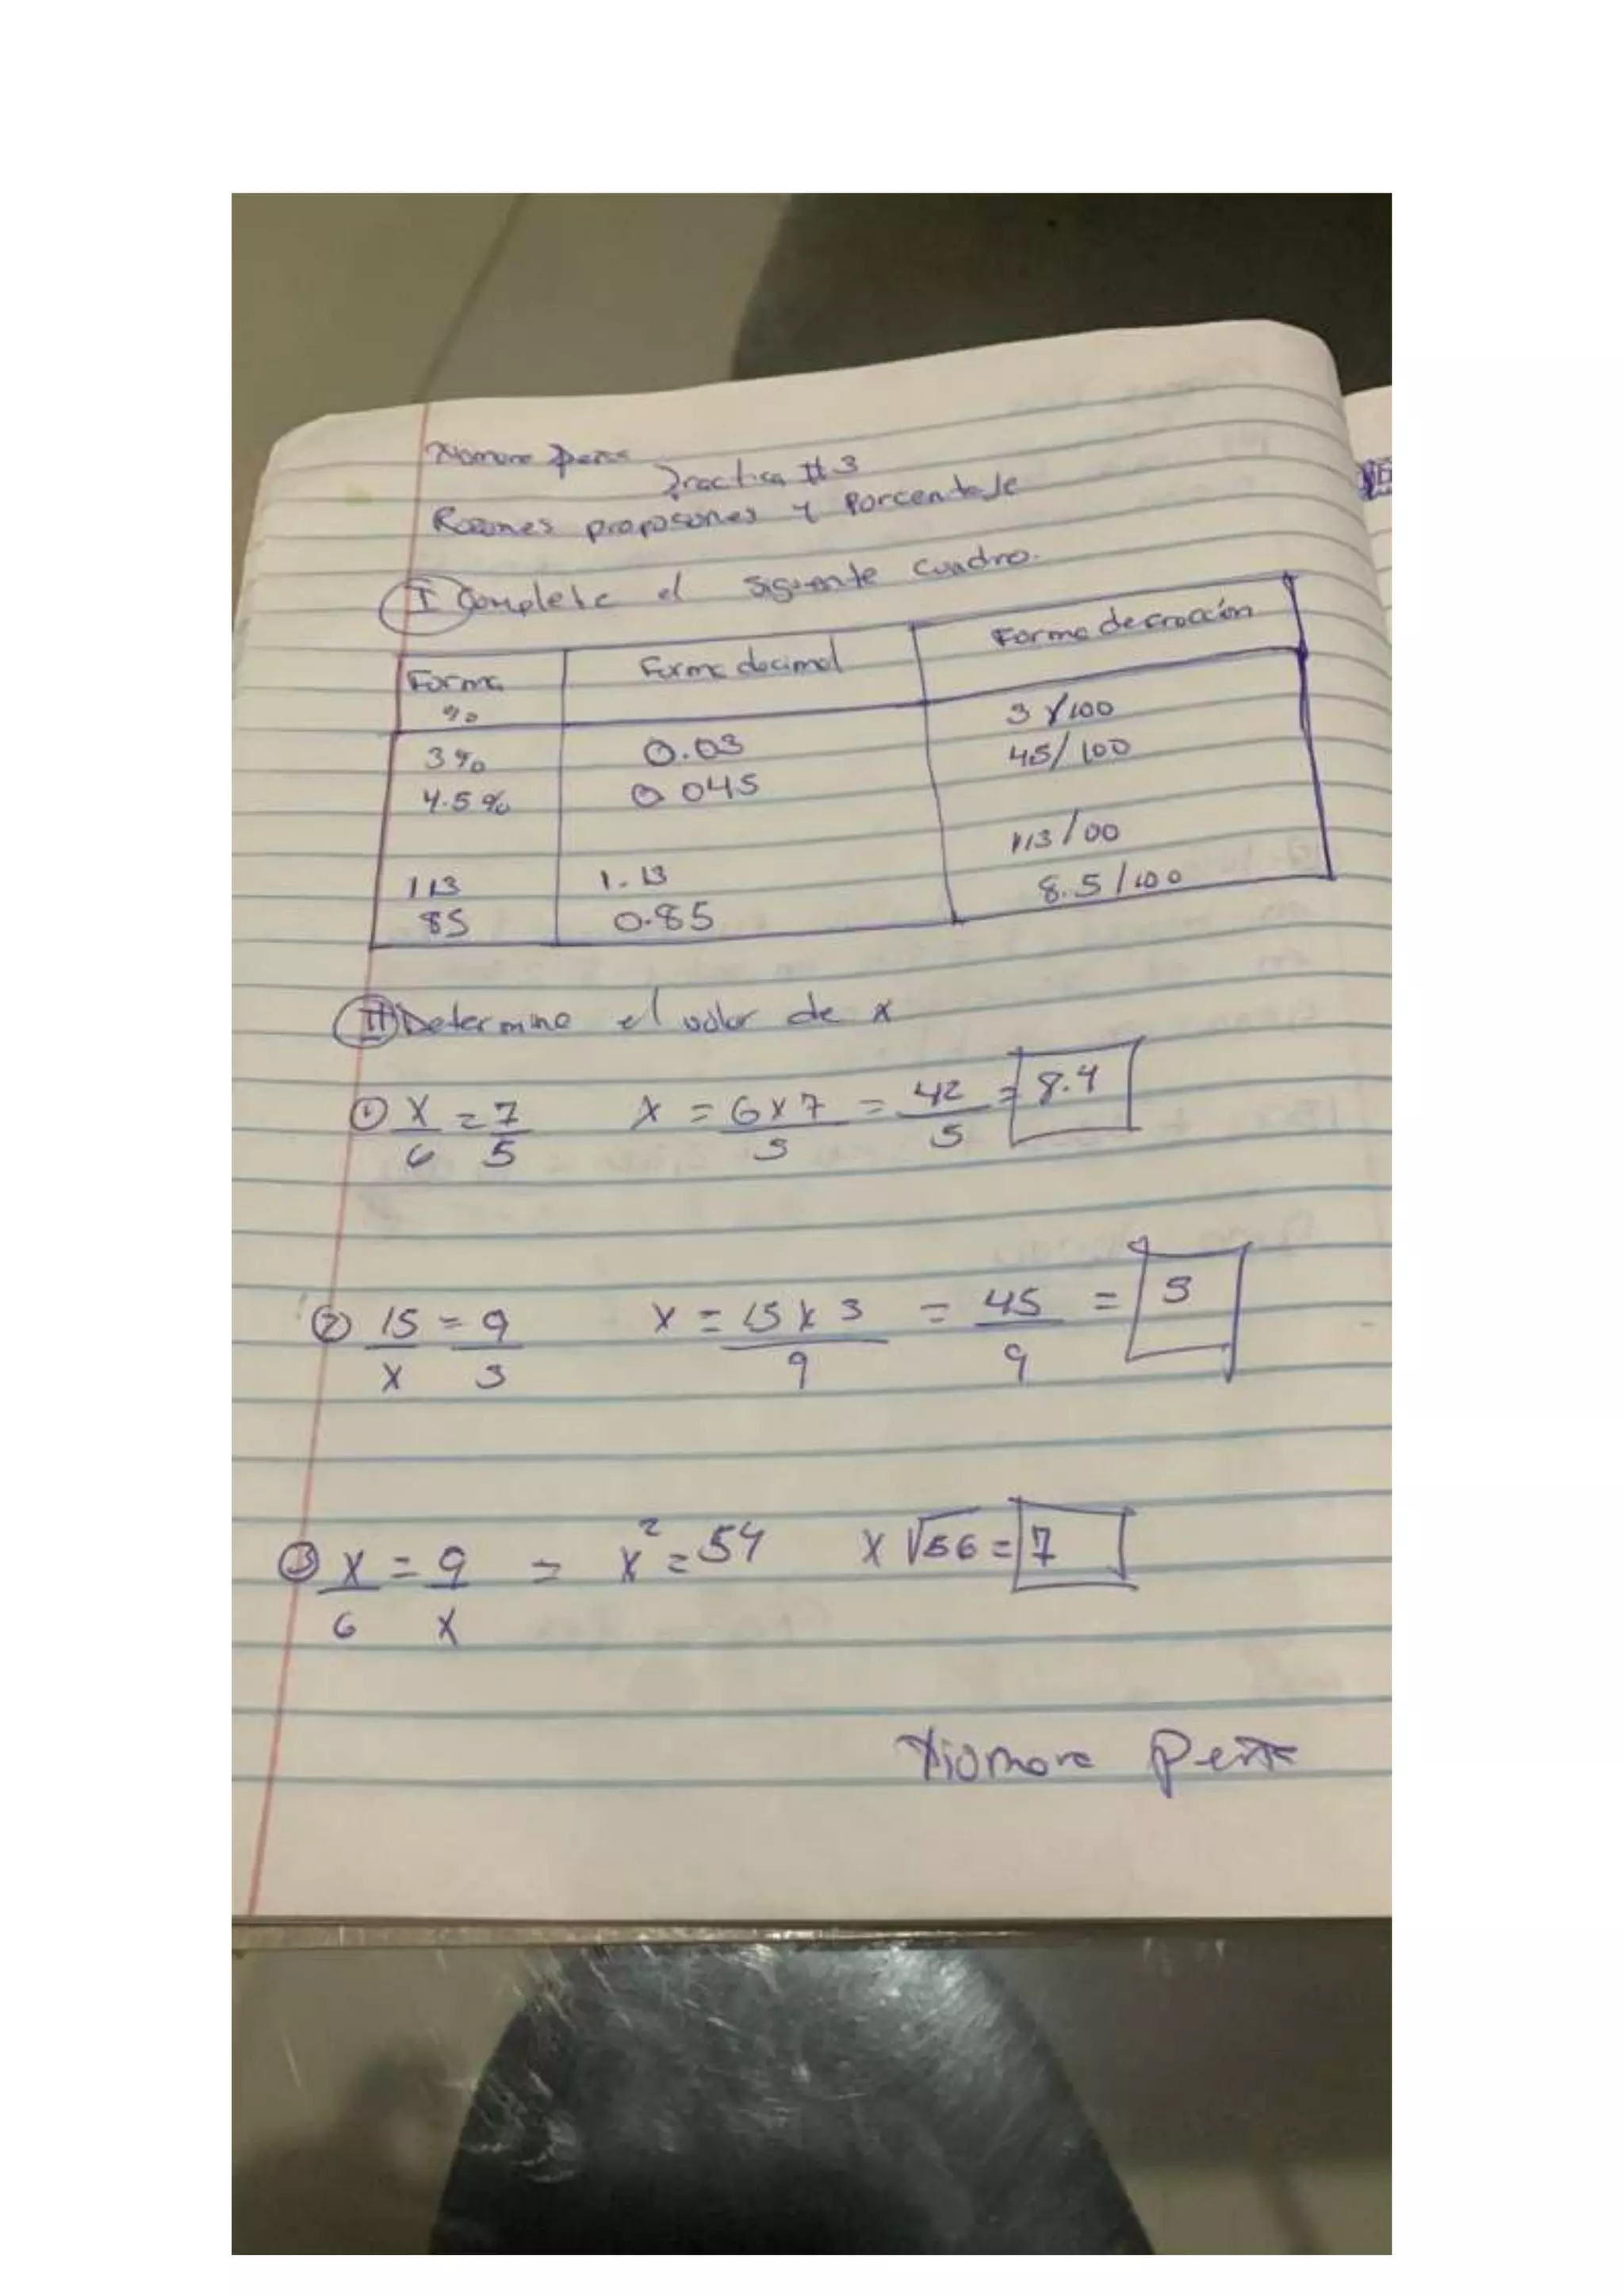 Practica #3
Razones proposones y Porcentaje
I Complete el siguente cuadro.
Forma % Forma decimal Forma de fracción
3% 0.03 3/100
4.5% 0.045 45/100
113 1.13 113/00
85 0.85 8.5/100
II Determine el valor de x
① x/6 = 7/5 x = 6x7/5 = 42/5 = 8.4
② 15/x = 9/3 x = 15x3/9 = 45/9 = 5
③ x/6 = 9/x = x² = 54 x √56 = 7
Xiomara Peña